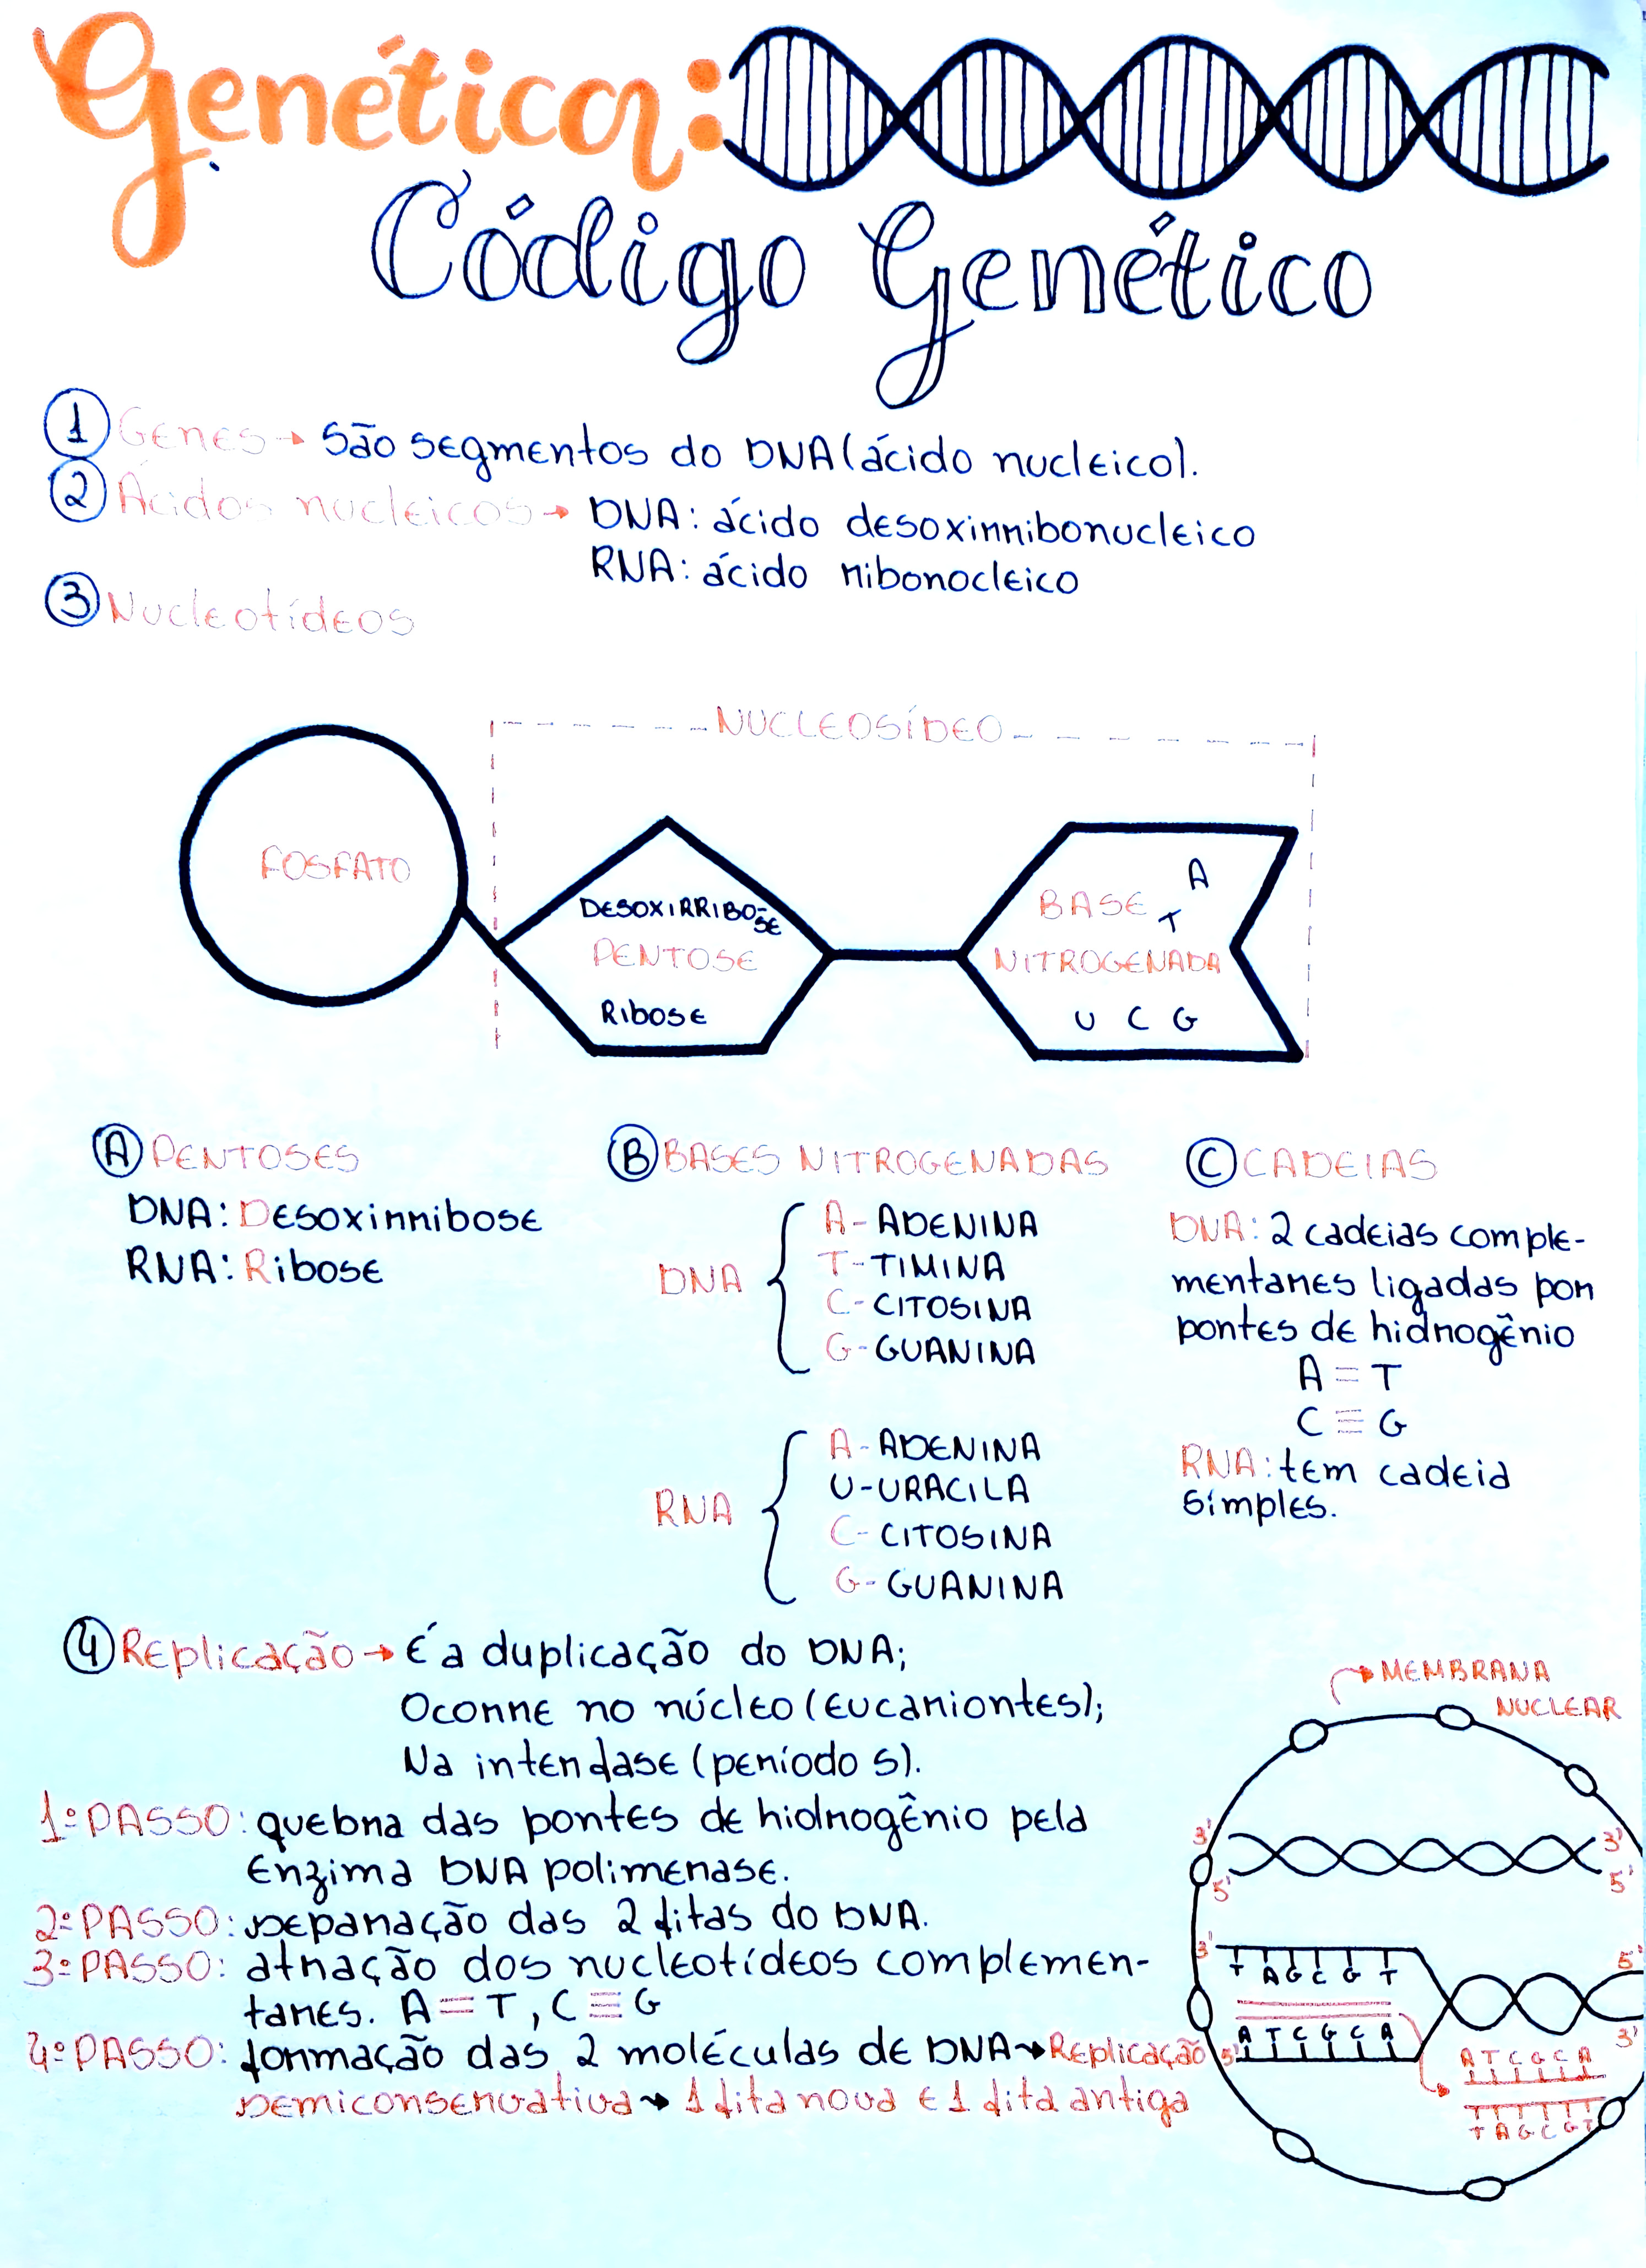 Genética:
Código Genético
1 Genes → São segmentos do DNA (ácido nucleico).
2 Ácidos nucleicos → DNA: ácido desoxirribonucleico
RNA: ácido ribonocleico
3 Nucleotídeos
NUCLEOSÍDEO
FOSFATO
DESOXIRRIBO-
SE
PENTOSE
Ribose
BASE
NITROGENADA
A
T
U C G
A PENTOSES
DNA: Desoxirribose
RNA: Ribose
B BASES NITROGENADAS
DNA
A - ADENINA
T - TIMINA
C - CITOSINA
G - GUANINA
RNA
A - ADENINA
U - URACILA
C - CITOSINA
G - GUANINA
C CADEIAS
DNA: 2 cadeias comple-
mentares ligadas por
pontes de hidrogênio
A = T
C ≡ G
RNA: tem cadeia
simples.
4 Replicação → É a duplicação do DNA;
Ocorre no núcleo (eucariontes);
Na interfase (período S).
1º PASSO: quebra das pontes de hidrogênio pela
enzima DNA polimerase.
2º PASSO: separação das 2 fitas do DNA.
3º PASSO: atração dos nucleotídeos complemen-
tares. A = T, C ≡ G
4º PASSO: formação das 2 moléculas de DNA → Replicação
semiconservativa → 1 fita nova e 1 fita antiga
MEMBRANA
NUCLEAR
3' 3'
5' 5'
3' 5'
T A G C G T
A T C G C A
5' 3'
A T C G C A
T A G C G T